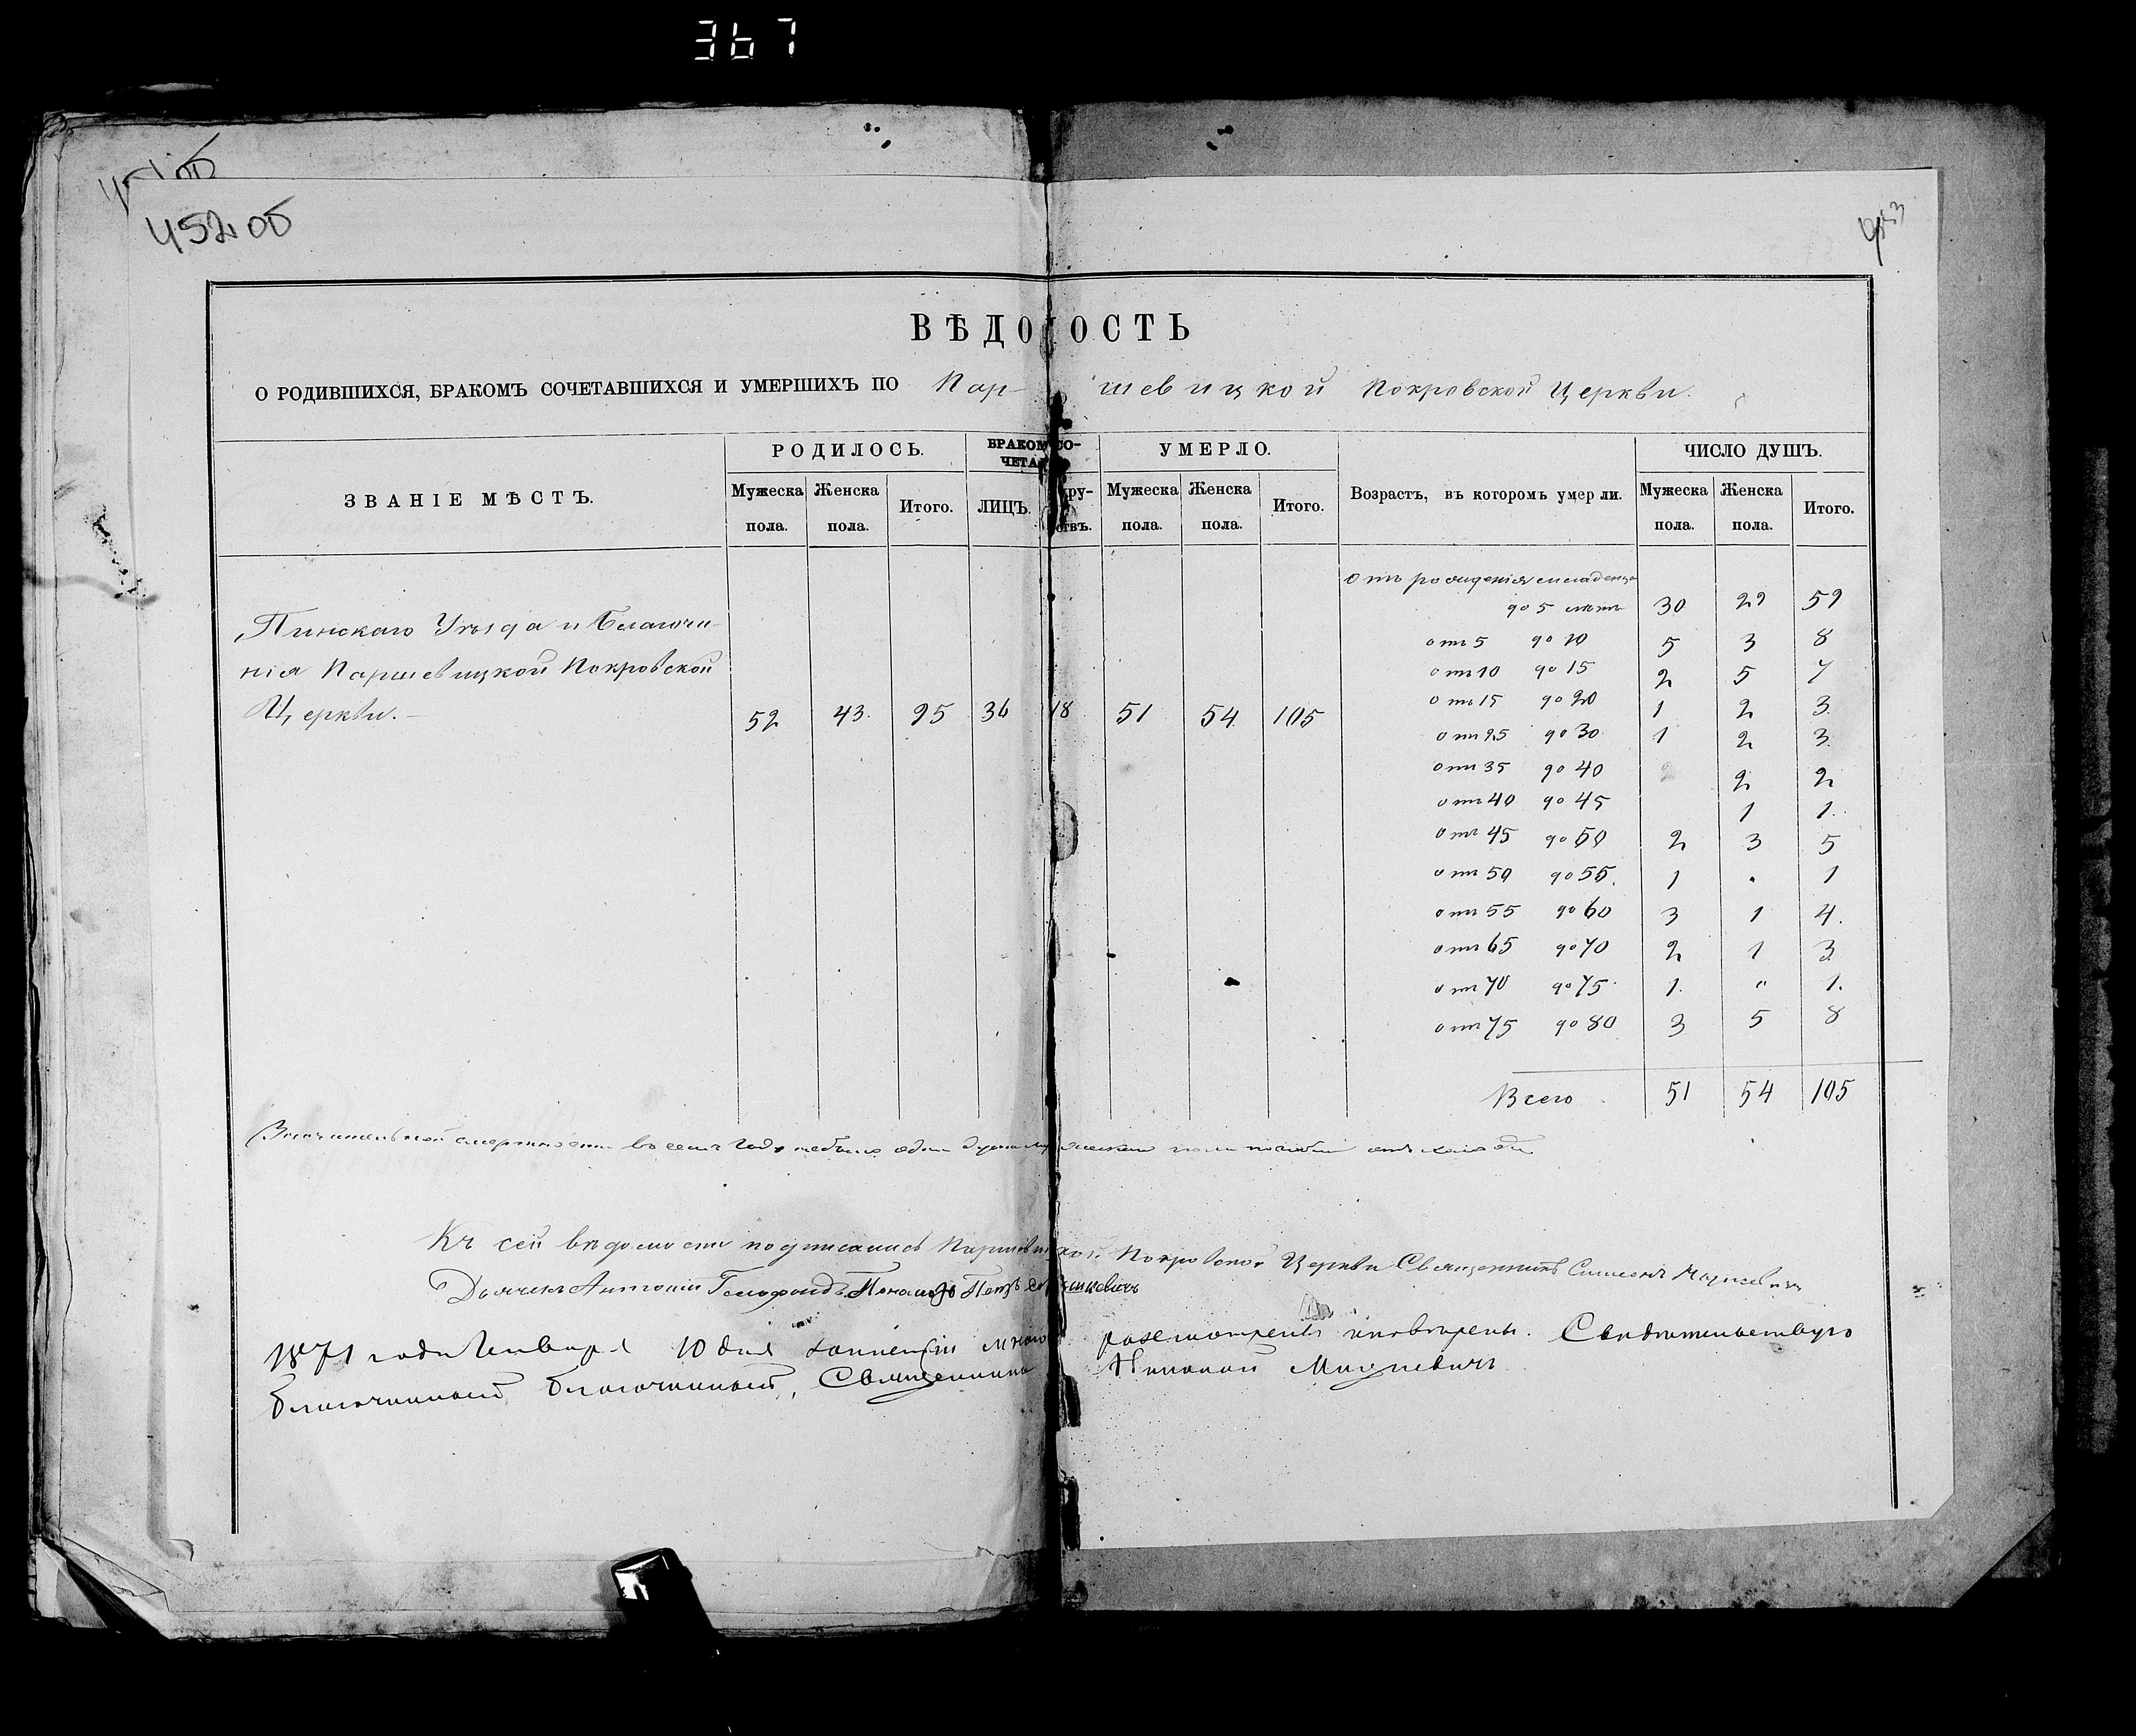 367
452 об
453
ВѢДОМОСТЬ
О РОДИВШИХСЯ, БРАКОМЪ СОЧЕТАВШИХСЯ И УМЕРШИХЪ ПО Пар- шевицкой Покровской Церкви.
ЗВАНІЕ МѢСТЪ. РОДИЛОСЬ. БРАКОМ СО- УМЕРЛО. Возрастъ, въ которомъ умерли. ЧИСЛО ДУШЪ.
ЧЕТА
Мужеска Женска Итого. ЛИЦЪ. кру- Мужеска Женска Итого. Мужеска Женска Итого.
пола. пола. ствъ. пола. пола. пола. пола.
отъ рожденія младенца
до 5 лѣтъ 30 29 59
Пинскаго Уѣзда и Благочи-
отъ 5 до 10 5 3 8
нія Паршевицкой Покровской
отъ 10 до 15 2 5 7
Церкви. 52 43. 95 36 18 51 54 105
отъ 15 до 20 1 2 3
отъ 25 до 30 1 2 3
отъ 35 до 40 2 2
отъ 40 до 45 1 1.
отъ 45 до 50 2 3 5
отъ 50 до 55. 1 " 1
отъ 55 до 60 3 1 4.
отъ 65 до 70 2 1 3
отъ 70 до 75 1. " 1.
отъ 75 до 80 3 5 8
Всего 51 54 105
Значительной смертности въ семъ году небыло
Къ сей вѣдомости подписались Паршевицкой Покровской Церкви Священникъ Симеонъ
Дьячекъ Антоній Пономарь Петръ
1871 года Генваря 10 дня мною разсмотрены и повѣрены. Свидѣтельствую
благочинный благочинный, Священникъ Николай